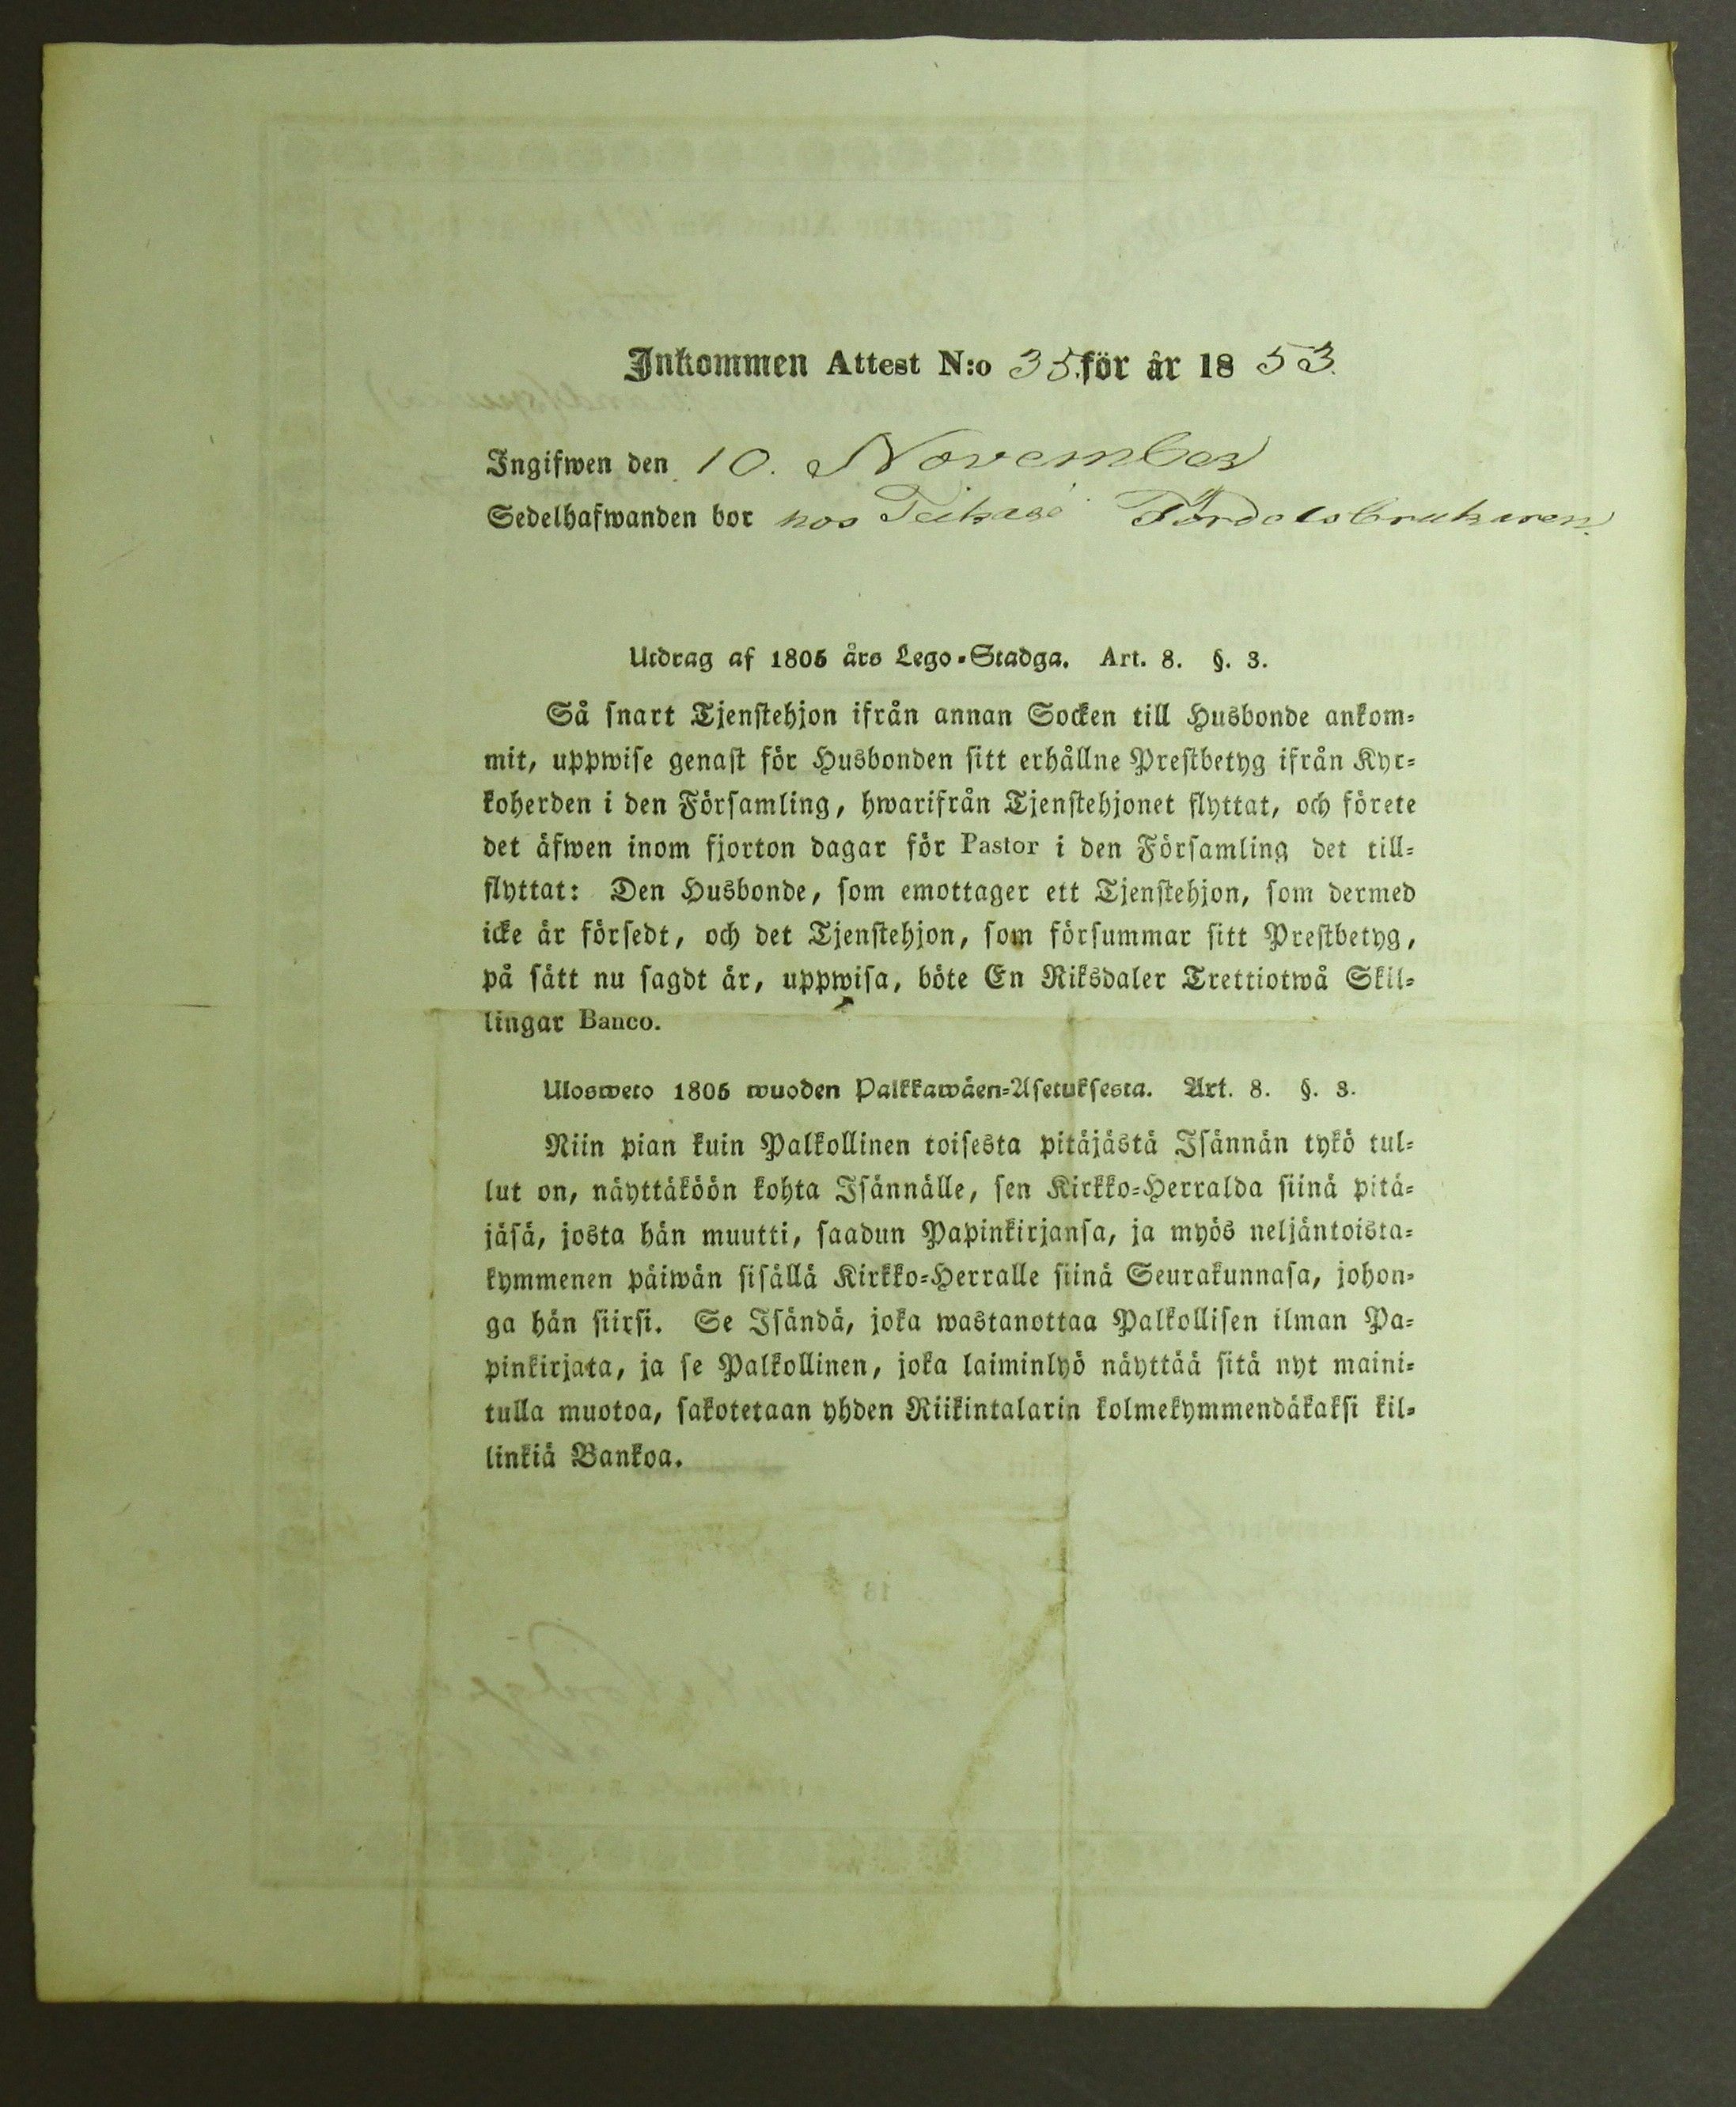 Inkommen Attest N:o 35. för år 1853.
Ingifwen den 10. November
Sedelhafwanden bor hos Fördelsbrukaren
Utdrag af 1805 års Lego-Stadga. Art. 8. §. 3.
Så snart Tjenstehjon ifrån annan Socken till Husbonde ankom-
mit, uppwise genast för Husbonden sitt erhållne Prestbetyg ifrån Kyr-
koherden i den Församling, hwarifrån Tjenstehjonet flyttat, och förete
det äfwen inom fjorton dagar för Pastor i den Församling det till-
flyttat: Den Husbonde, som emottager ett Tjenstehjon, som dermed
icke är försedt, och det Tjenstehjon, som försummar sitt Prestbetyg,
på sätt nu sagdt är, uppwisa, böte En Riksdaler Trettiotwå Skil-
lingar Banco.
Ulosweto 1805 wuoden Palkkawäen-Asetuksesta. Art. 8. §. 3.
Niin pian kuin Palkollinen toisesta pitäjästä Isännän tykö tul-
lut on, näyttäköön kohta Isännälle, sen Kirkko-Herralda siinä pitä-
jäsä, josta hän muutti, saadun Papinkirjansa, ja myös neljäntoista-
kymmenen päiwän sisällä Kirkko-Herralle siinä Seurakunnasa, johon-
ga hän siirsi. Se Isändä, joka wastanottaa Palkollisen ilman Pa-
pinkirjata, ja se Palkollinen, joka laiminlyö näyttää sitä nyt maini-
tulla muotoa, sakotetaan yhden Riikintalarin kolmekymmendäkaksi kil-
linkiä Bankoa.